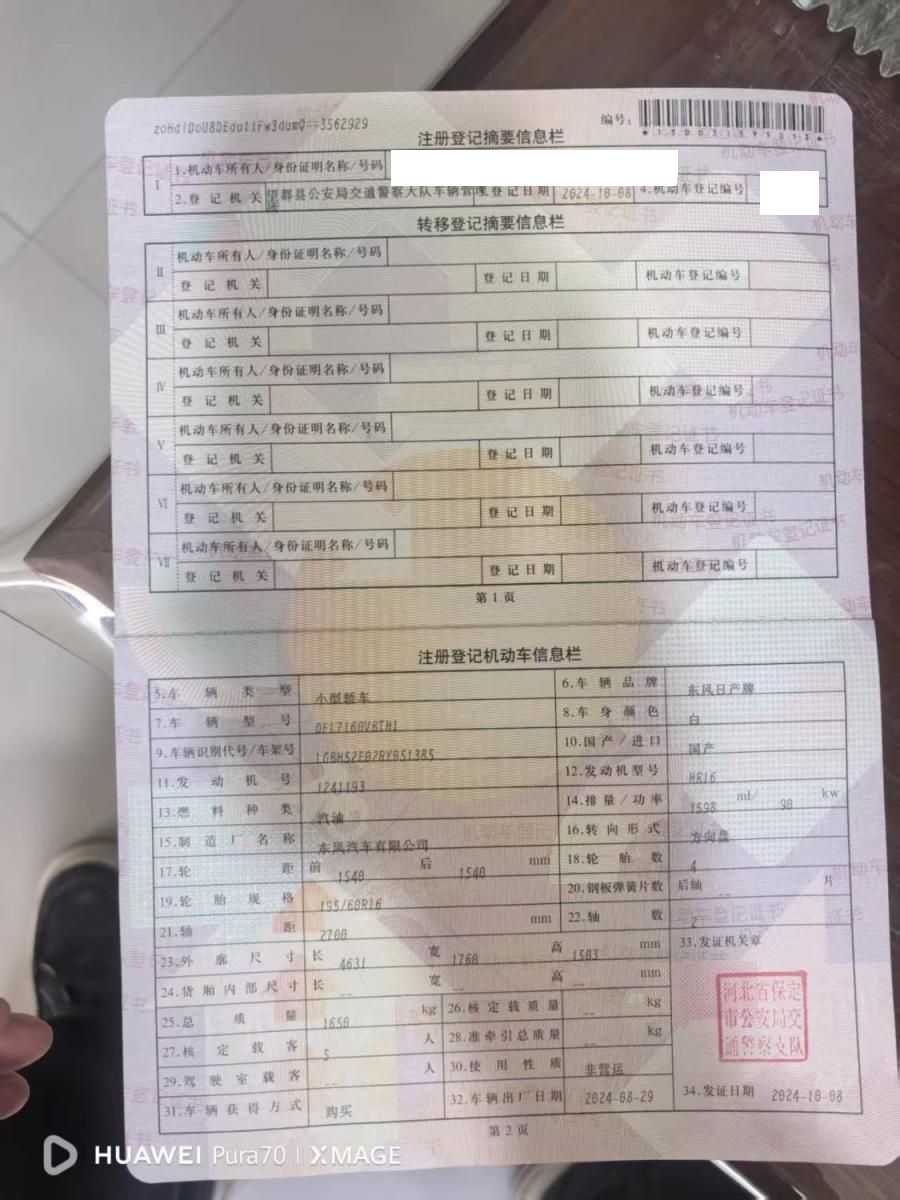 zoHdlDoU8DEdu1iFw3dumQ==3562929
编号:
注册登记摘要信息栏
I 1.机动车所有人/身份证明名称/号码
2.登记机关 望都县公安局交通警察大队车辆管理 登记日期 2024-10-08 4.机动车登记编号
转移登记摘要信息栏
II 机动车所有人/身份证明名称/号码
登记机关 登记日期 机动车登记编号
III 机动车所有人/身份证明名称/号码
登记机关 登记日期 机动车登记编号
IV 机动车所有人/身份证明名称/号码
登记机关 登记日期 机动车登记编号
V 机动车所有人/身份证明名称/号码
登记机关 登记日期 机动车登记编号
VI 机动车所有人/身份证明名称/号码
登记机关 登记日期 机动车登记编号
VII 机动车所有人/身份证明名称/号码
登记机关 登记日期 机动车登记编号
第1页
注册登记机动车信息栏
5.车辆类型 小型轿车 6.车辆品牌 东风日产牌
7.车辆型号 DFL7160VBIH1 8.车身颜色 白
9.车辆识别代号/车架号 LGBH52E02RY051385 10.国产/进口 国产
11.发动机号 1241193 12.发动机型号 HR16
13.燃料种类 汽油 14.排量/功率 1598 ml/ 90 kw
15.制造厂名称 东风汽车有限公司 16.转向形式 方向盘
17.轮距 前 1540 后 1540 mm 18.轮胎数 4
19.轮胎规格 195/60R16 20.钢板弹簧片数 后轴 -- 片
21.轴距 2700 mm 22.轴数 2
23.外廓尺寸 长 4631 宽 1760 高 1503 mm 33.发证机关章
24.货厢内部尺寸 长 -- 宽 -- 高 -- mm
25.总质量 1650 kg 26.核定载质量 -- kg
27.核定载客 5 人 28.准牵引总质量 -- kg
河北省保定
市公安局交
通警察支队
29.驾驶室载客 -- 人 30.使用性质 非营运
31.车辆获得方式 购买 32.车辆出厂日期 2024-08-29 34.发证日期 2024-10-08
第2页
HUAWEI Pura70 | XMAGE